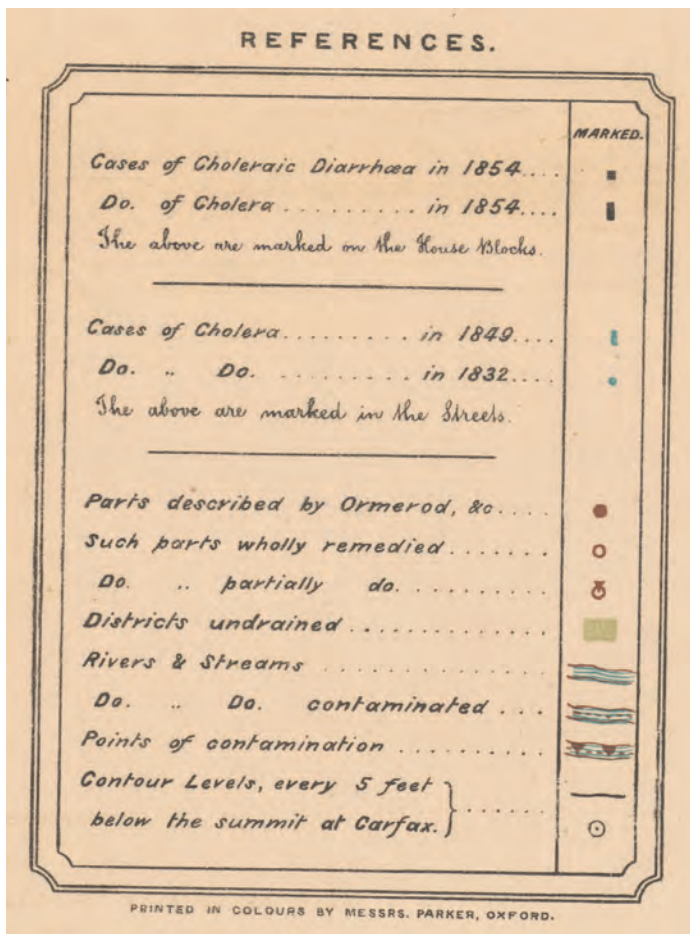 REFERENCES.
MARKED.
Cases of Choleraic Diarrhœa in 1854....
Do. of Cholera ......... in 1854....
The above are marked on the House Blocks.
Cases of Cholera......... in 1849....
Do. .. Do. ......... in 1832....
The above are marked in the Streets.
Parts described by Ormerod, &c....
Such parts wholly remedied.......
Do. .. partially do...........
Districts undrained..............
Rivers & Streams ..............
Do. .. Do. contaminated ...
Points of contamination ..........
Contour Levels, every 5 feet
below the summit at Carfax. ......
PRINTED IN COLOURS BY MESSRS. PARKER, OXFORD.